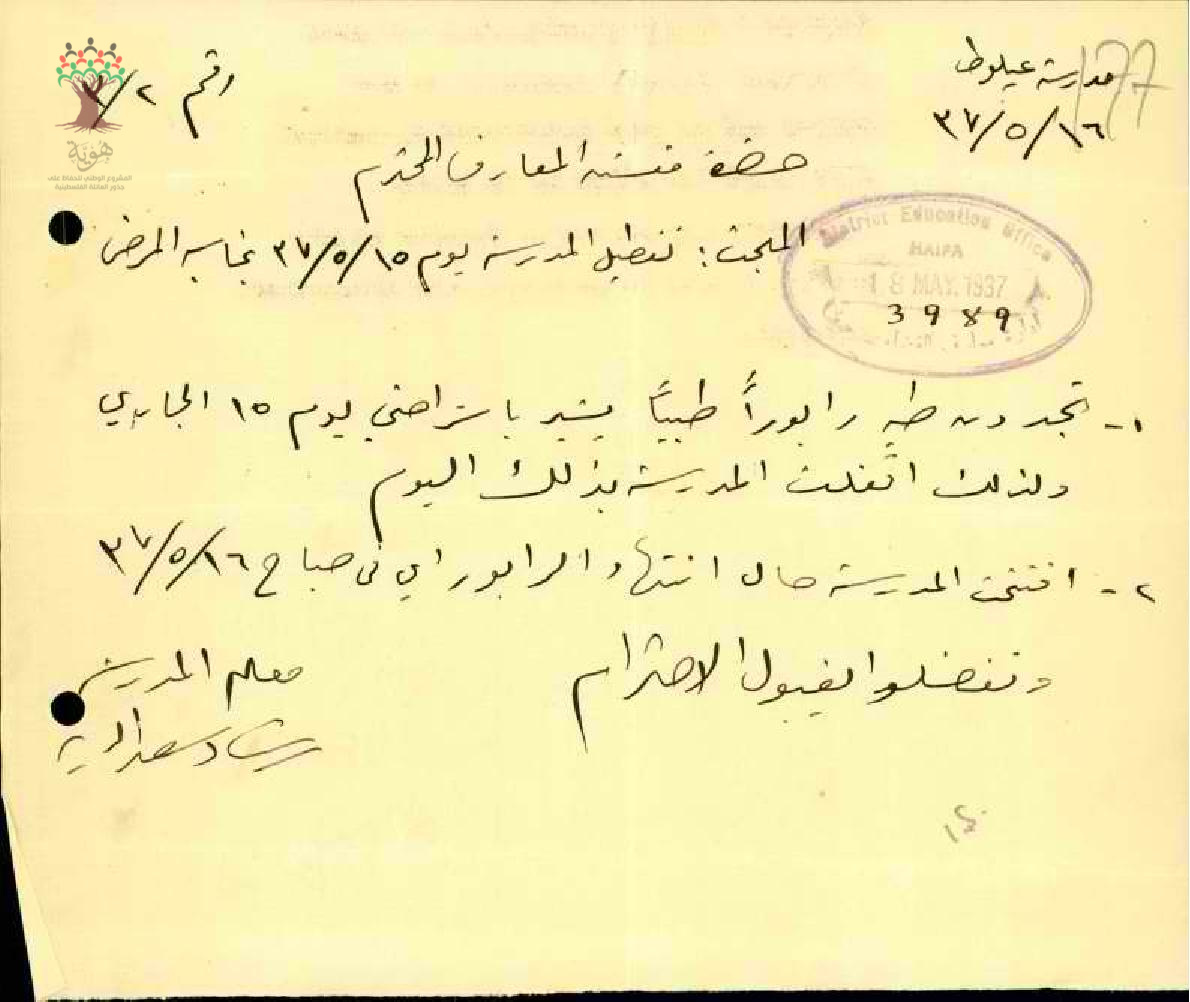 مدرسة عيلوط
177
١٦/٥/٣٧
رقم ٣/٢
هوية
المشروع الوطني للحفاظ على
جذور العائلة الفلسطينية
حضرة مفتش المعارف المحترم
المبحث: تعطيل المدرسة يوم ١٥/٥/٣٧ بمناسبة المرض
District Education Office
HAIFA
18 MAY.1937
3989
١- تجدون طيه رابوراً طبياً يشير باستراحتي يوم ١٥ الجاري
ولذلك اقفلت المدرسة بذلك اليوم
٢- افتتحت المدرسة حال انتهاء الرابور اي في صباح ١٦/٥/٣٧
وتفضلوا بقبول الاحترام
معلم المدرسة
رشاد سعد الدين